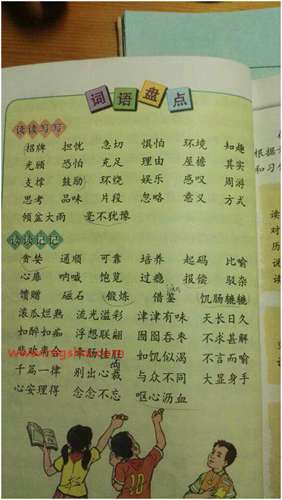 词语盘点
读读写写
招牌 担忧 急切 惧怕 环境 知趣
光顾 恐怕 充足 理由 屋檐 其实
支撑 鼓励 环绕 娱乐 感叹 周游
思考 品味 片段 忽略 意义 方式
倾盆大雨 毫不犹豫
读读记记
贪婪 通顺 可靠 培养 起码 比喻
心扉 呐喊 饱览 过瘾 报偿 驳杂
馈赠 磁石 锻炼 借鉴 饥肠辘辘
滚瓜烂熟 流光溢彩 津津有味 天长日久
如醉如痴 浮想联翩 囫囵吞枣 不求甚解
悲欢离合 牵肠挂肚 如饥似渴 不言而喻
千篇一律 别出心裁 与众不同 大显身手
心安理得 念念不忘 呕心沥血
根据
和习
读
对
历
读